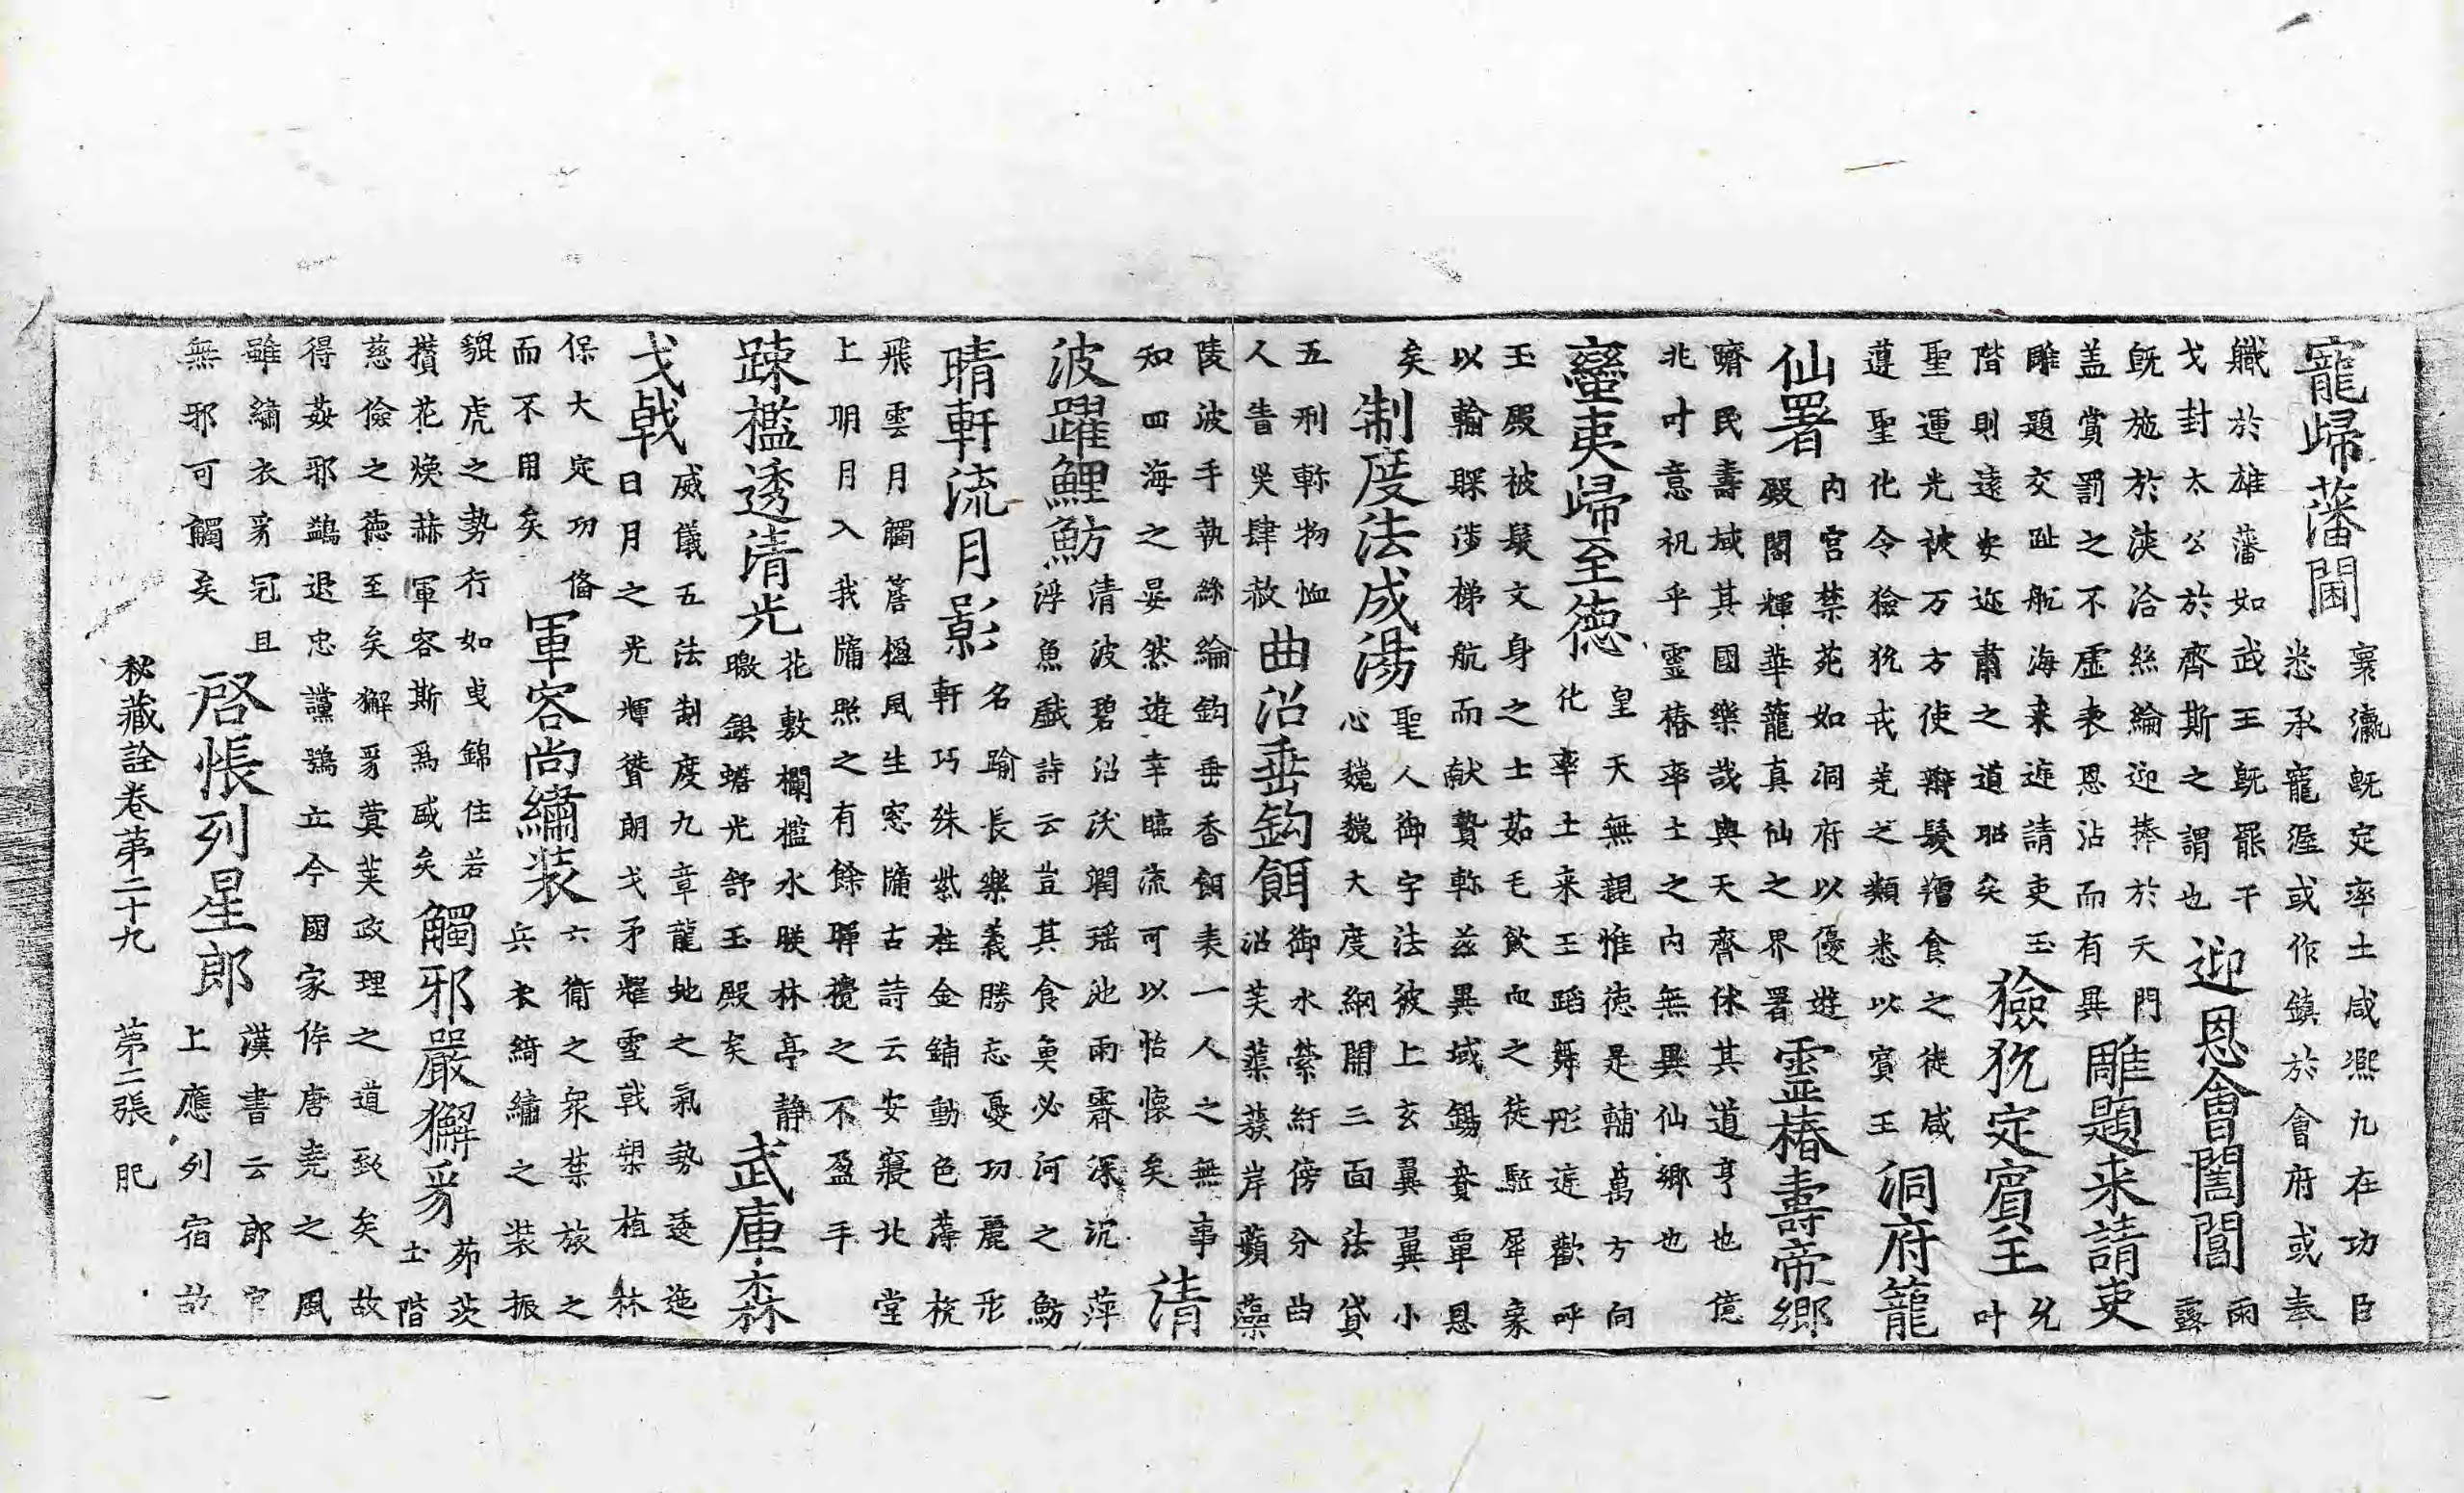 寵歸藩閫
襄瀛既定率土咸熈九在功臣
悉承寵渥或作鎮於會府或奉
軄於雄藩如武王既罷干
戈封太公於齊斯之謂也
迎恩會闔閶
雨
露
既施於渙洽絲綸迎捧於天門
盖賞罰之不虛表恩沾而有異
雕題来請吏
雕題交趾航海来迋請吏玉
階則遠安迩肅之道昭矣
獫狁定賓王
允
叶
聖運光被万方使辮髮羶食之徒咸
遵聖化令獫狁戎羌之類悉以賓王
洞府籠
仙署
内宮禁苑如洞府以優遊
殿閣輝華籠真仙之界署
靈椿壽帝鄉
躋民壽域其國樂哉與天齊休其道亨也億
兆叶意祝乎靈椿率土之内無異仙鄉也
蠻夷歸至德
皇天無親惟德是輔萬方向
化率土来王蹈舞彤逰歡呼
玉殿被髮文身之士茹毛飲血之徒駈犀象
以輪賝涉梯航而献贄斯茲異域錫賚覃恩
矣
制度法成湯
聖人御宇法被上玄翼翼小
心巍巍大度網開三面法貸
五刑斯物恤
人眚灾肆赦
曲沼垂鈎餌
御水縈紆傍分曲
沼芙蕖蔟岸蘋藻
陵波手執絲綸鈎垂香餌表一人之無事
知四海之晏然遊幸臨流可以怡懷矣
清
波躍鯉魴
清波碧沼沃潤瑶池雨霽深沉萍
浮魚戲詩云豈其食魚必河之魴
晴軒流月影
名踰長樂義勝忘憂功麗形
軒巧殊紫柱金鋪動色藻梲
飛雲月觸簷楹風生窓牖古詩云安寢北堂
上明月入我牖照之有餘暉攬之不盈手
踈檻透清光
花敷欄檻水映林亭静
皦銀蟾光舒玉殿矣
武庫森
戈戟
威儀五法制度九章龍虵之氣勢逶迤
日月之光煇瓚朗戈矛耀雪戟槊植林
保大定功俻
而不用矣
軍容尚繡装
六衛之衆禁旅之
兵衣綺繡之装振
貔虎之勢行如曳錦住若
攢花煥赫軍容斯爲盛矣
觸邪嚴獬豸
茆茨
土階
慈儉之德至矣獬豸蓂莢政理之道致矣故
得姦邪鷁退忠讜鴞立今國家侔唐堯之風
雖繡衣豸冠且
無邪可觸矣
啓帳列星郎
漢書云郎官
上應列宿故
秘藏詮卷第二十九　第二張　肥